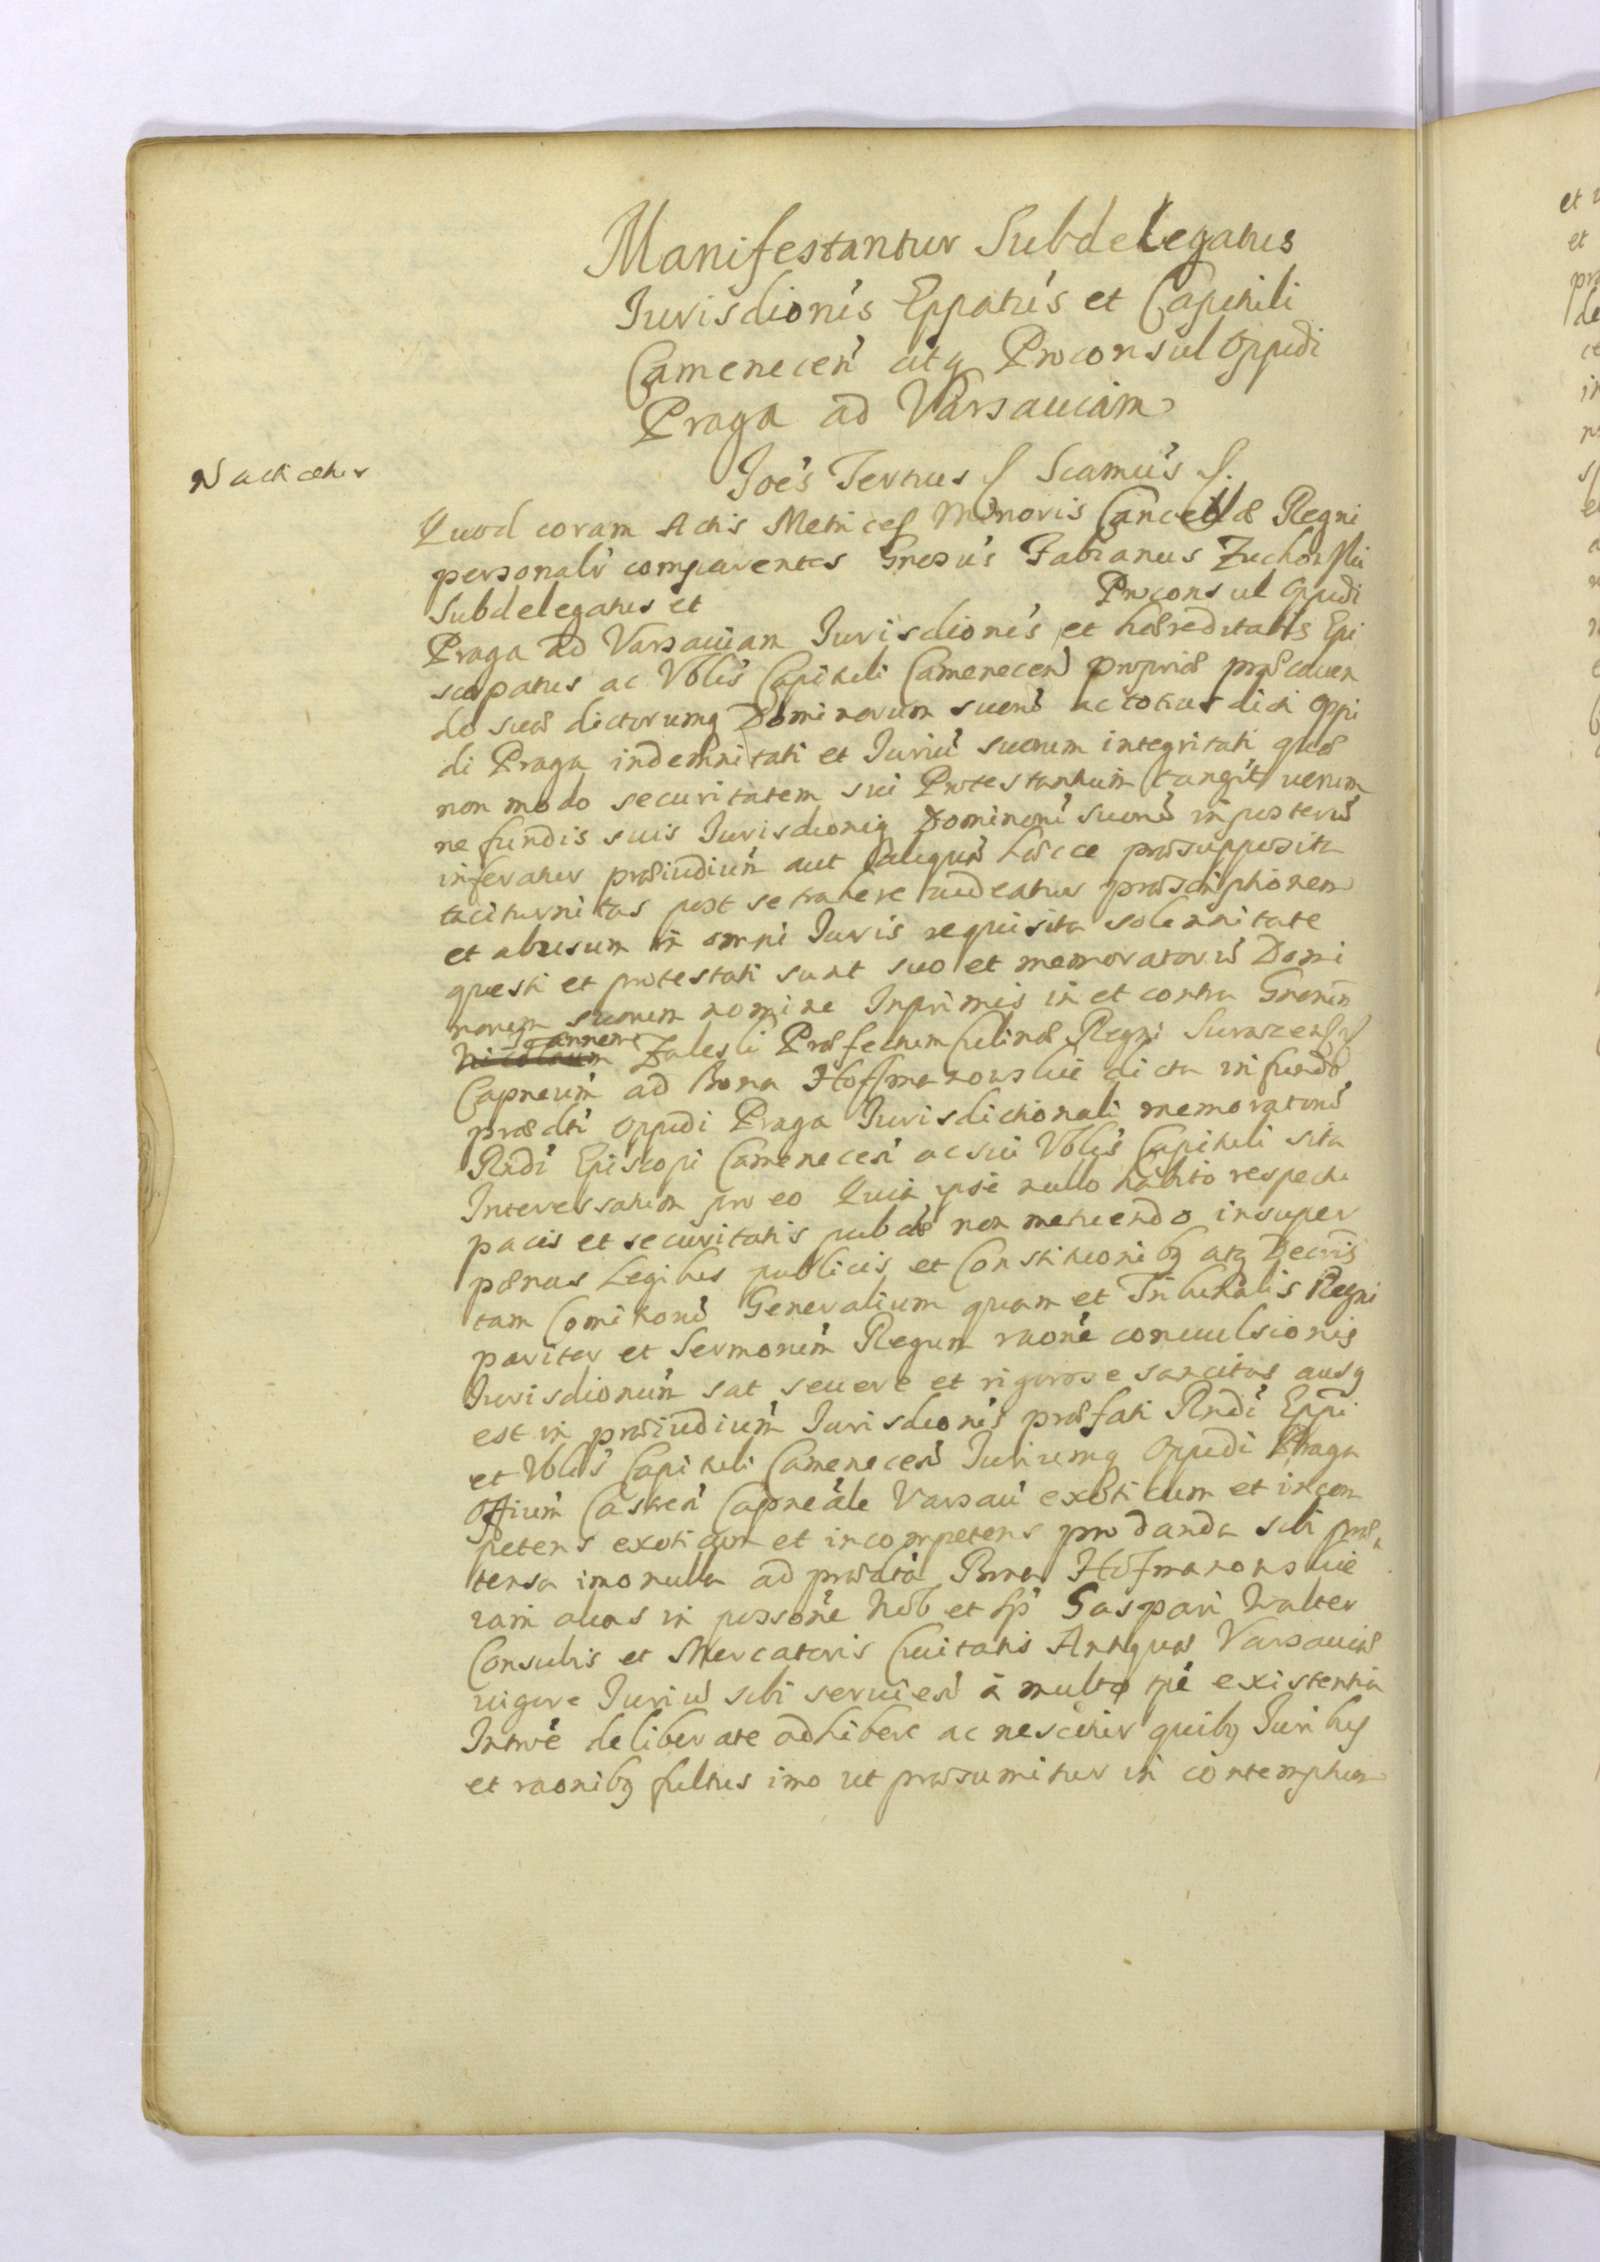 Manifestantur Subdelegatus
Jurisdionis Eppatus et Capituli
Camenecen atq Proconsul Oppidi
Praga ad Varsauiam
Joes Tertius Scamus
Quod coram Actis Metrices Minoris Cancellæ Regni
personalr comparentes Gnosus Fabianus
Subdelegatus et Proconsul Oppidi
Praga ad Varsauiam Jurisdionis et hæreditatis Epi
scopatus ac Vblis Capituli Camenecen propriæ præcauen
do suæ dictorumq Dominorum suoru ac totius dicti Oppi
di Praga indemnitati et Juriu suorum integritati quæ
non modo securitatem sui Protestantium tangit uerum
ne fundis suis Jurisdioniq Dominoru suoru in posteru
inferatur præiudium aut aliqua hæcce præsupposita
taciturnitas post se trahere uideatur præscriptionem
et abusum in omni Juris requisita solennitate
questi et protestati sunt suo et memoratoru Domi
norum suorum nomine Inprimis in et contra Gnorum
Joannem
Nicolaum Zaleski Præfectum Culinæ Regni Surazens
Capneum ad Bona Hoffmanowskie dicta in fundo
prædti Oppidi Praga Jurisdictionali memoratoru
Rndi Episcopi Camenecen ac sui Vblis Capituli sita
Interessatum pro eo Quia ipse nullo habito respectu
pacis et securitatis pubcæ non metuendo insuper
pænas Legibus publicis et Constitutionibq atq Decris
tam Comitioru Generalium quam et Tribunalis Regni
pariter et Sermonum Regum raone conuulsionis
Jurisdionum sat seuere et rigorose sancitas ausq
est in præiudium Jurisdionis præfati Rndi Eppi
et Vblis Capituli Camenecen Juriumq Oppidi Praga
Offium Castren Capneale Varsau exoticum et incom
petens exoticum et incompetens pro danda sibi præ
tensa imo nulla ad prædta Bona Hofmanowskie
iam alias in possone Nob et Sp Gaspari Walter
Consulis et Mercatoris Ciuitatis Antiquæ Varsauiæ
uigore Juriu sibi seruien à multo tpe existentia
Intro deliberate adhibere ac nescitur quibq Juribq
et raonibq fultus imo ut præsumitur in contemptum